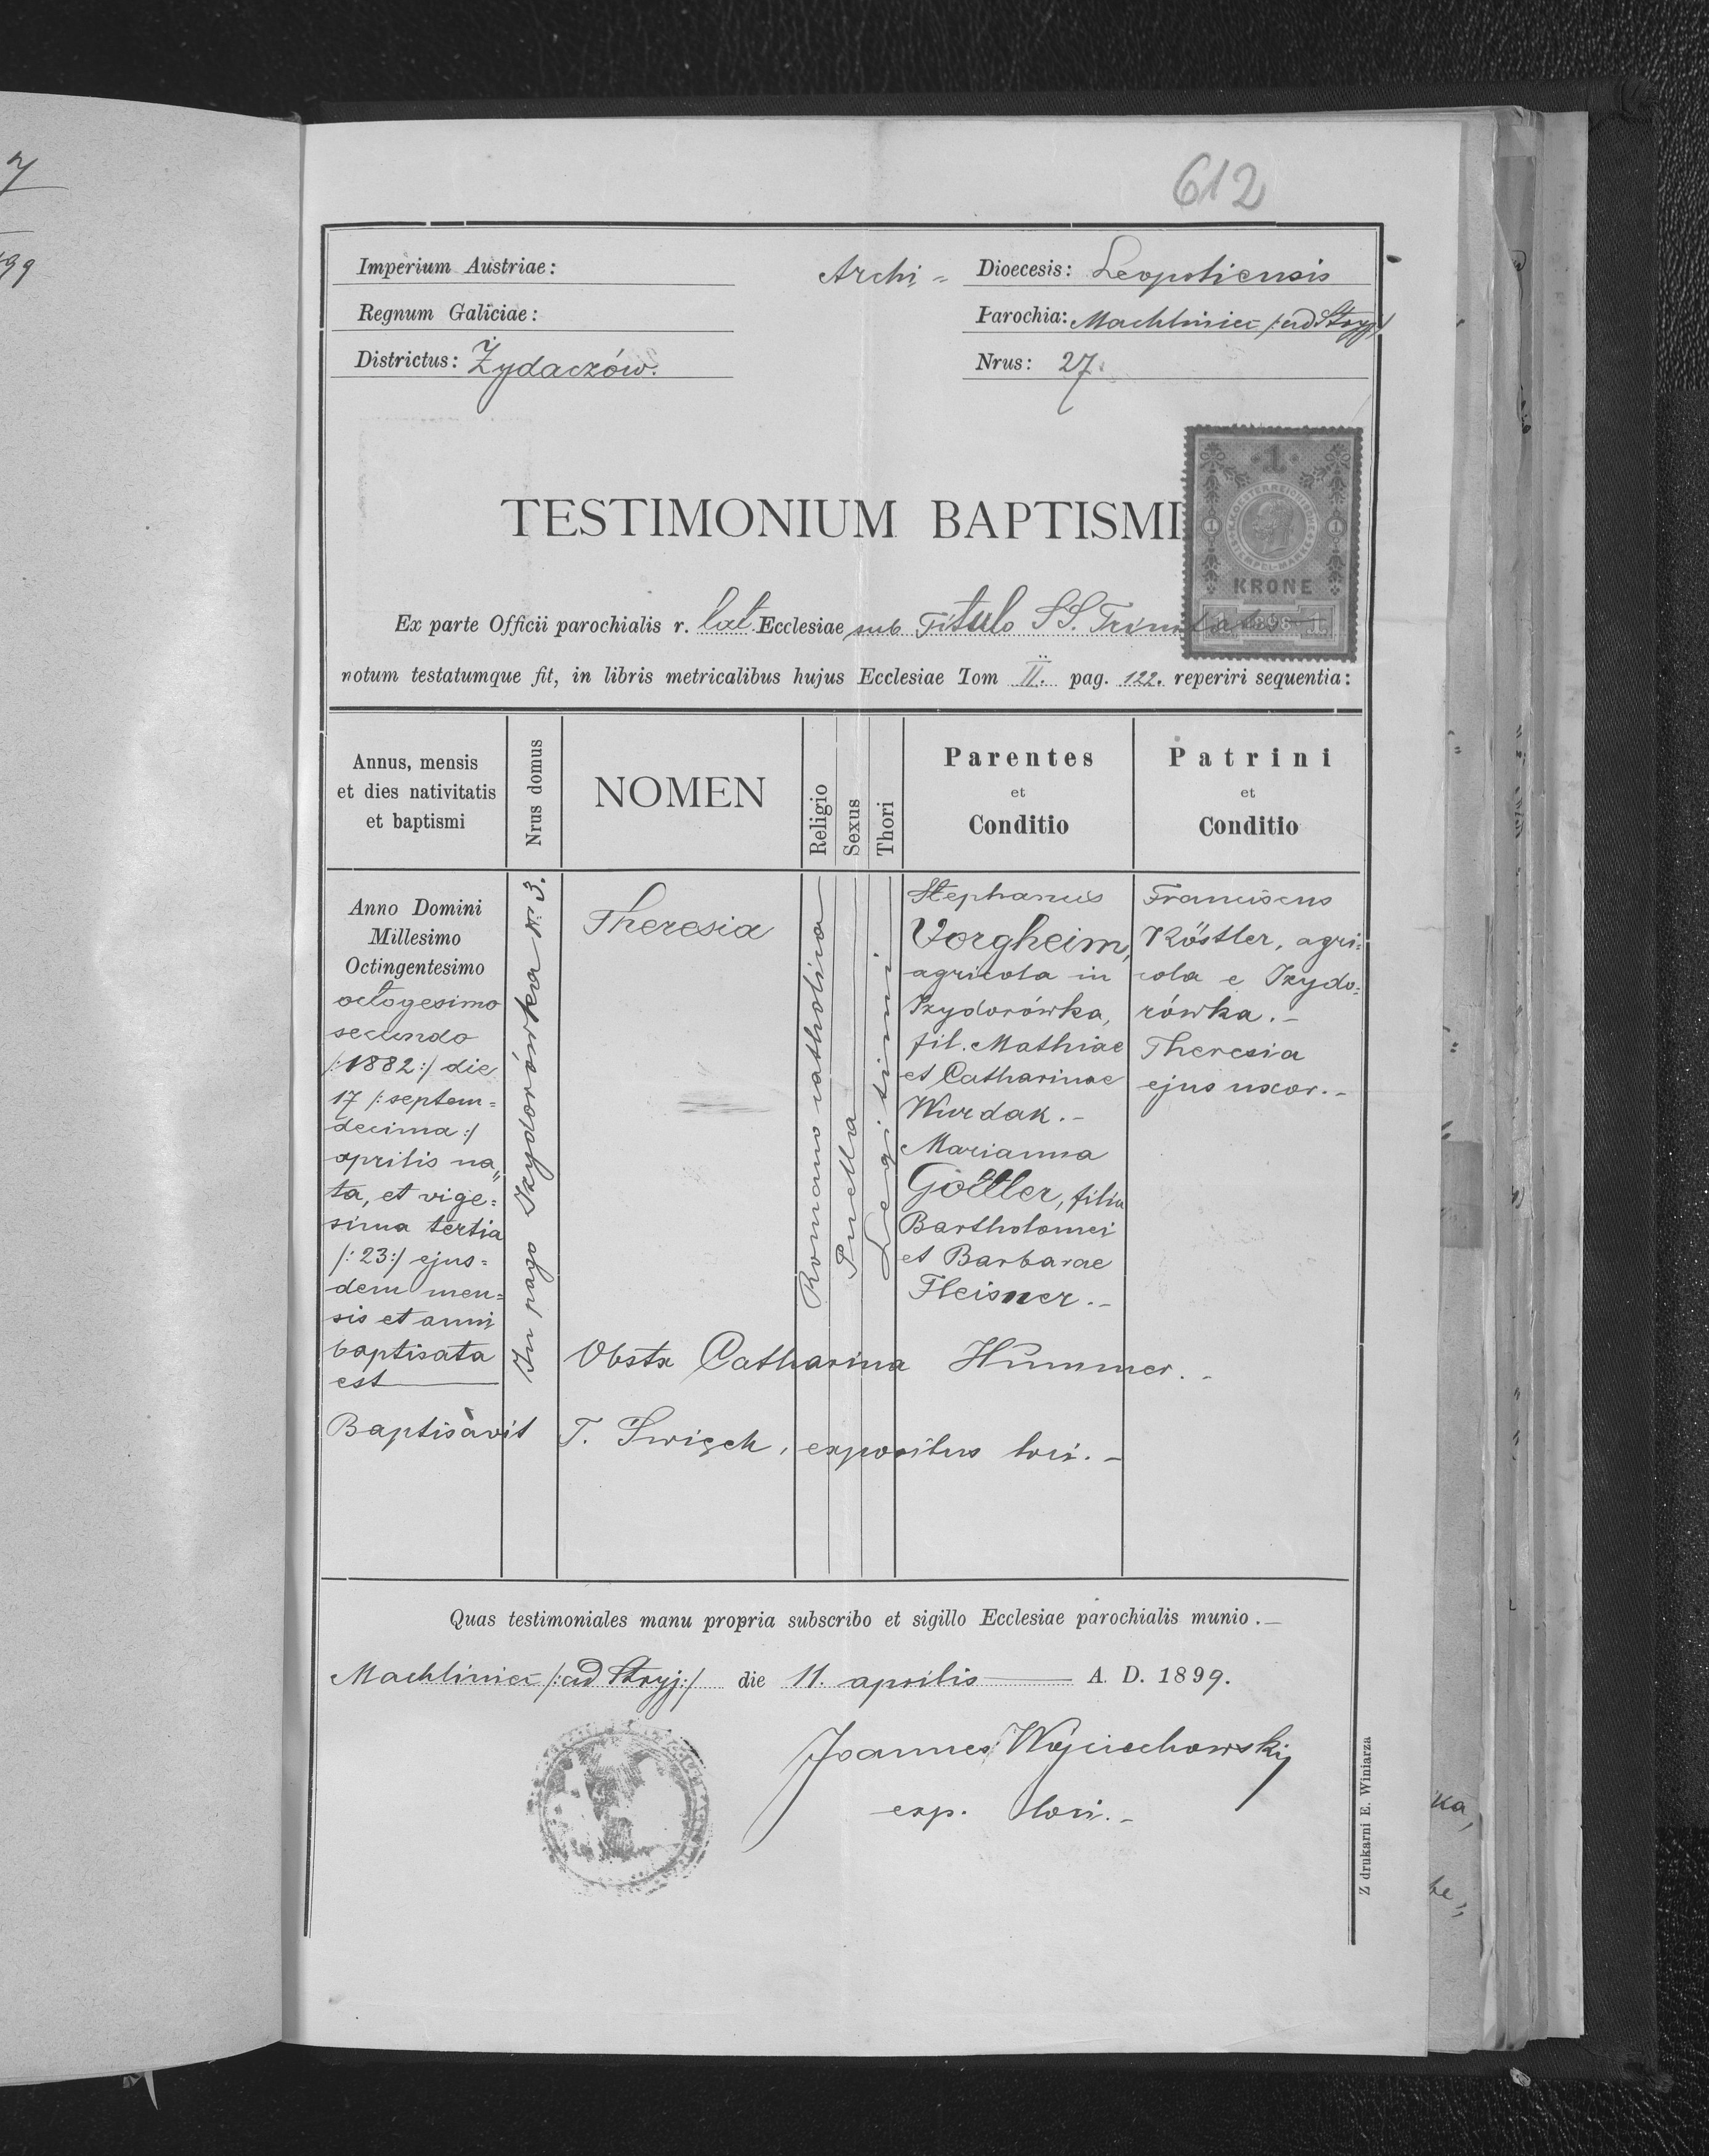 7
99
612
Imperium Austriae:
Archi= Dioecesis: Leopoliensis
Regnum Galiciae:
Parochia: Machliniec /:ad Stryj:/
Districtus: Żydaczów.
Nrus: 27.
TESTIMONIUM BAPTISMI
1
KRONE
1898
Ex parte Officii parochialis r. lat. Ecclesiae sub Titulo SS. Trinitatis
notum testatumque fit, in libris metricalibus hujus Ecclesiae Tom II. pag. 122. reperiri sequentia:
Annus, mensis
et dies nativitatis
et baptismi
Nrus domus
NOMEN
Religio
Sexus
Thori
Parentes
et
Conditio
Patrini
et
Conditio
Anno Domini
Millesimo
Octingentesimo
octogesimo
secundo
/:1882:/ die
17 /:septem=
decima:/
aprilis na„
ta, et vige=
sima tertia
/:23:/ ejus=
dem men=
sis et anni
baptisata
est
In pago Izydorówka Nr. 3.
Theresia
Romano catholica
Puella
Legitimi
Stephanus
Vorgheim,
agricola in
Izydorówka,
fil. Mathiae
et Catharinae
Wurdak.-
Marianna
Göttler, filia
Bartholomei
et Barbarae
Fleisner.-
Franciscus
Köstler, agri=
cola e Izydo=
rówka.-
Theresia
ejus uxor.-
Obstx Catharina Hummer.-
Baptisavit T. Swisch, expositus loci.-
Quas testimoniales manu propria subscribo et sigillo Ecclesiae parochialis munio.
Machliniec /:ad Stryj:/ die 11. aprilis A. D. 1899.
Joannes Wojciechowskij
exp. loci.-
Z drukarni E. Winiarza